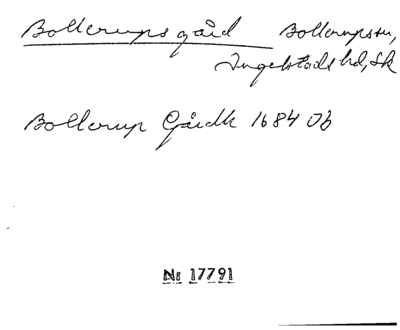 Bollerups gård Bollerups sn,
Ingelstads hd, Sk
Bollerup Gårdh 1684 Jb
No 17791